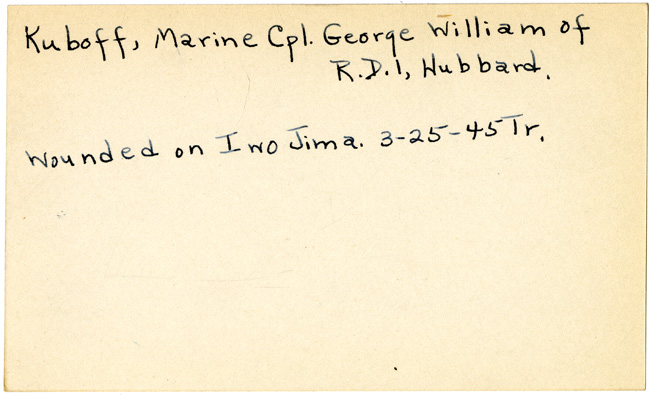 Kuboff, Marine Cpl. George William of
R.D.1, Hubbard.
Wounded on Iwo Jima. 3-25-45 Tr.